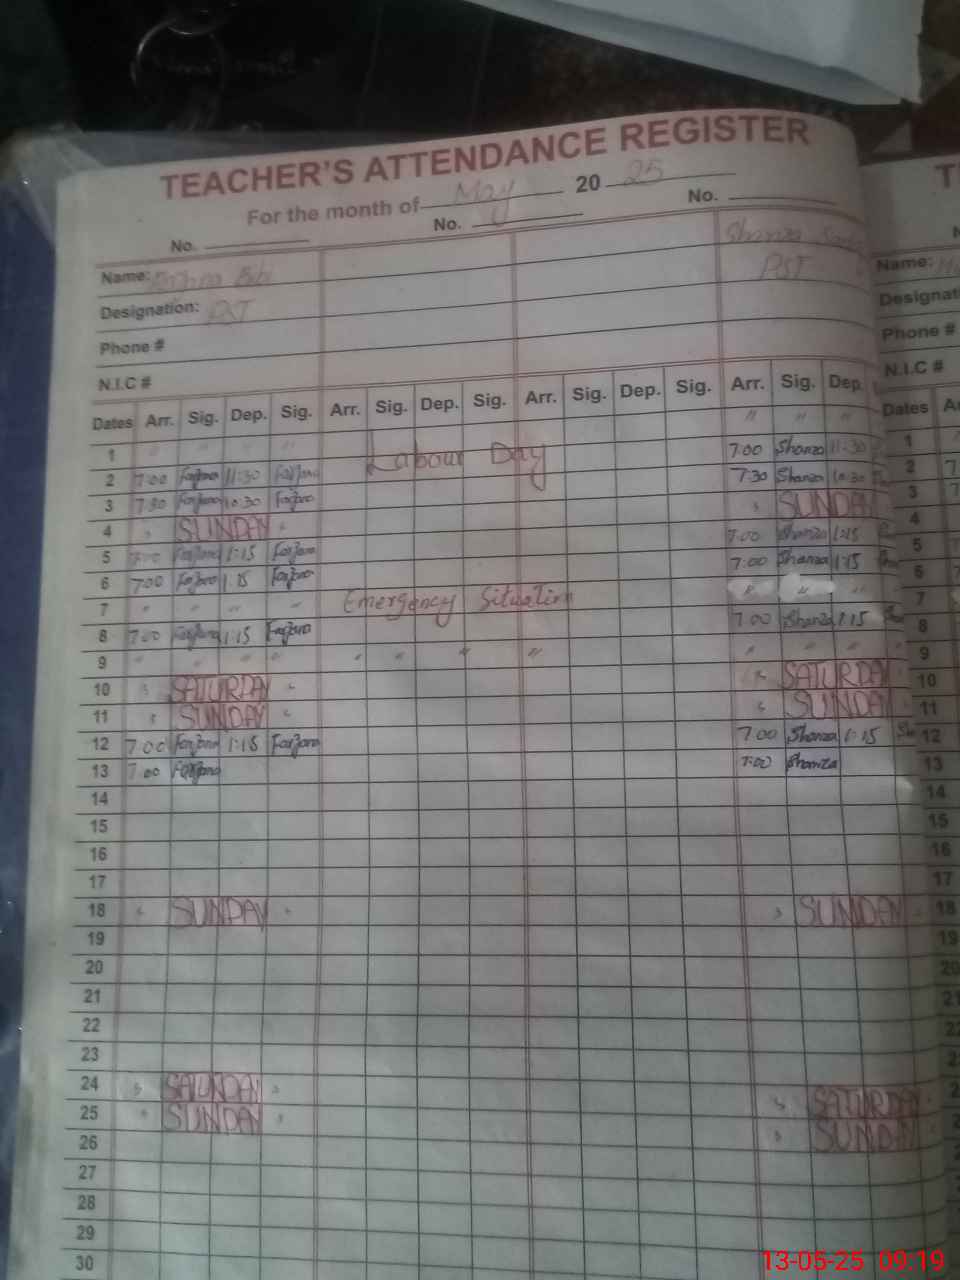 TEACHER'S ATTENDANCE REGISTER
For the month of May 2025
No. No. No.
Name: Bibi Shanza
Designation: PST PST
Phone #
N.I.C #
Dates Arr. Sig. Dep. Sig. Arr. Sig. Dep. Sig. Arr. Sig. Dep. Sig. Arr. Sig. Dep.
1 " " " " Labour Day " " "
2 7:00 Farzana 11:30 Farzana 7:00 Shanza 11:30
3 7:30 Farzana 10:30 Farzana 7:30 Shanza 10:30
4 SUNDAY SUNDAY
5 7:00 Farzana 1:15 Farzana 7:00 Shanza 1:15
6 7:00 Farzana 1:15 Farzana 7:00 Shanza 1:15
7 " " " " Emergency Situation " " "
8 7:00 Farzana 1:15 Farzana 7:00 Shanza 1:15
9 " " " " " " " " " " "
10 SATURDAY SATURDAY
11 SUNDAY SUNDAY
12 7:00 Farzana 1:15 Farzana 7:00 Shanza 1:15 Sha
13 7:00 Farzana 7:00 Shanza
14
15
16
17
18 SUNDAY SUNDAY
19
20
21
22
23
24 SATURDAY SATURDAY
25 SUNDAY SUNDAY
26
27
28
29
30
T
Name:
Designat
Phone #
N.I.C #
Dates A
1
2 7
3
4
5
6
7
8
9
10
11
12
13
14
15
16
17
18
19
20
21
22
13-05-25 09:19